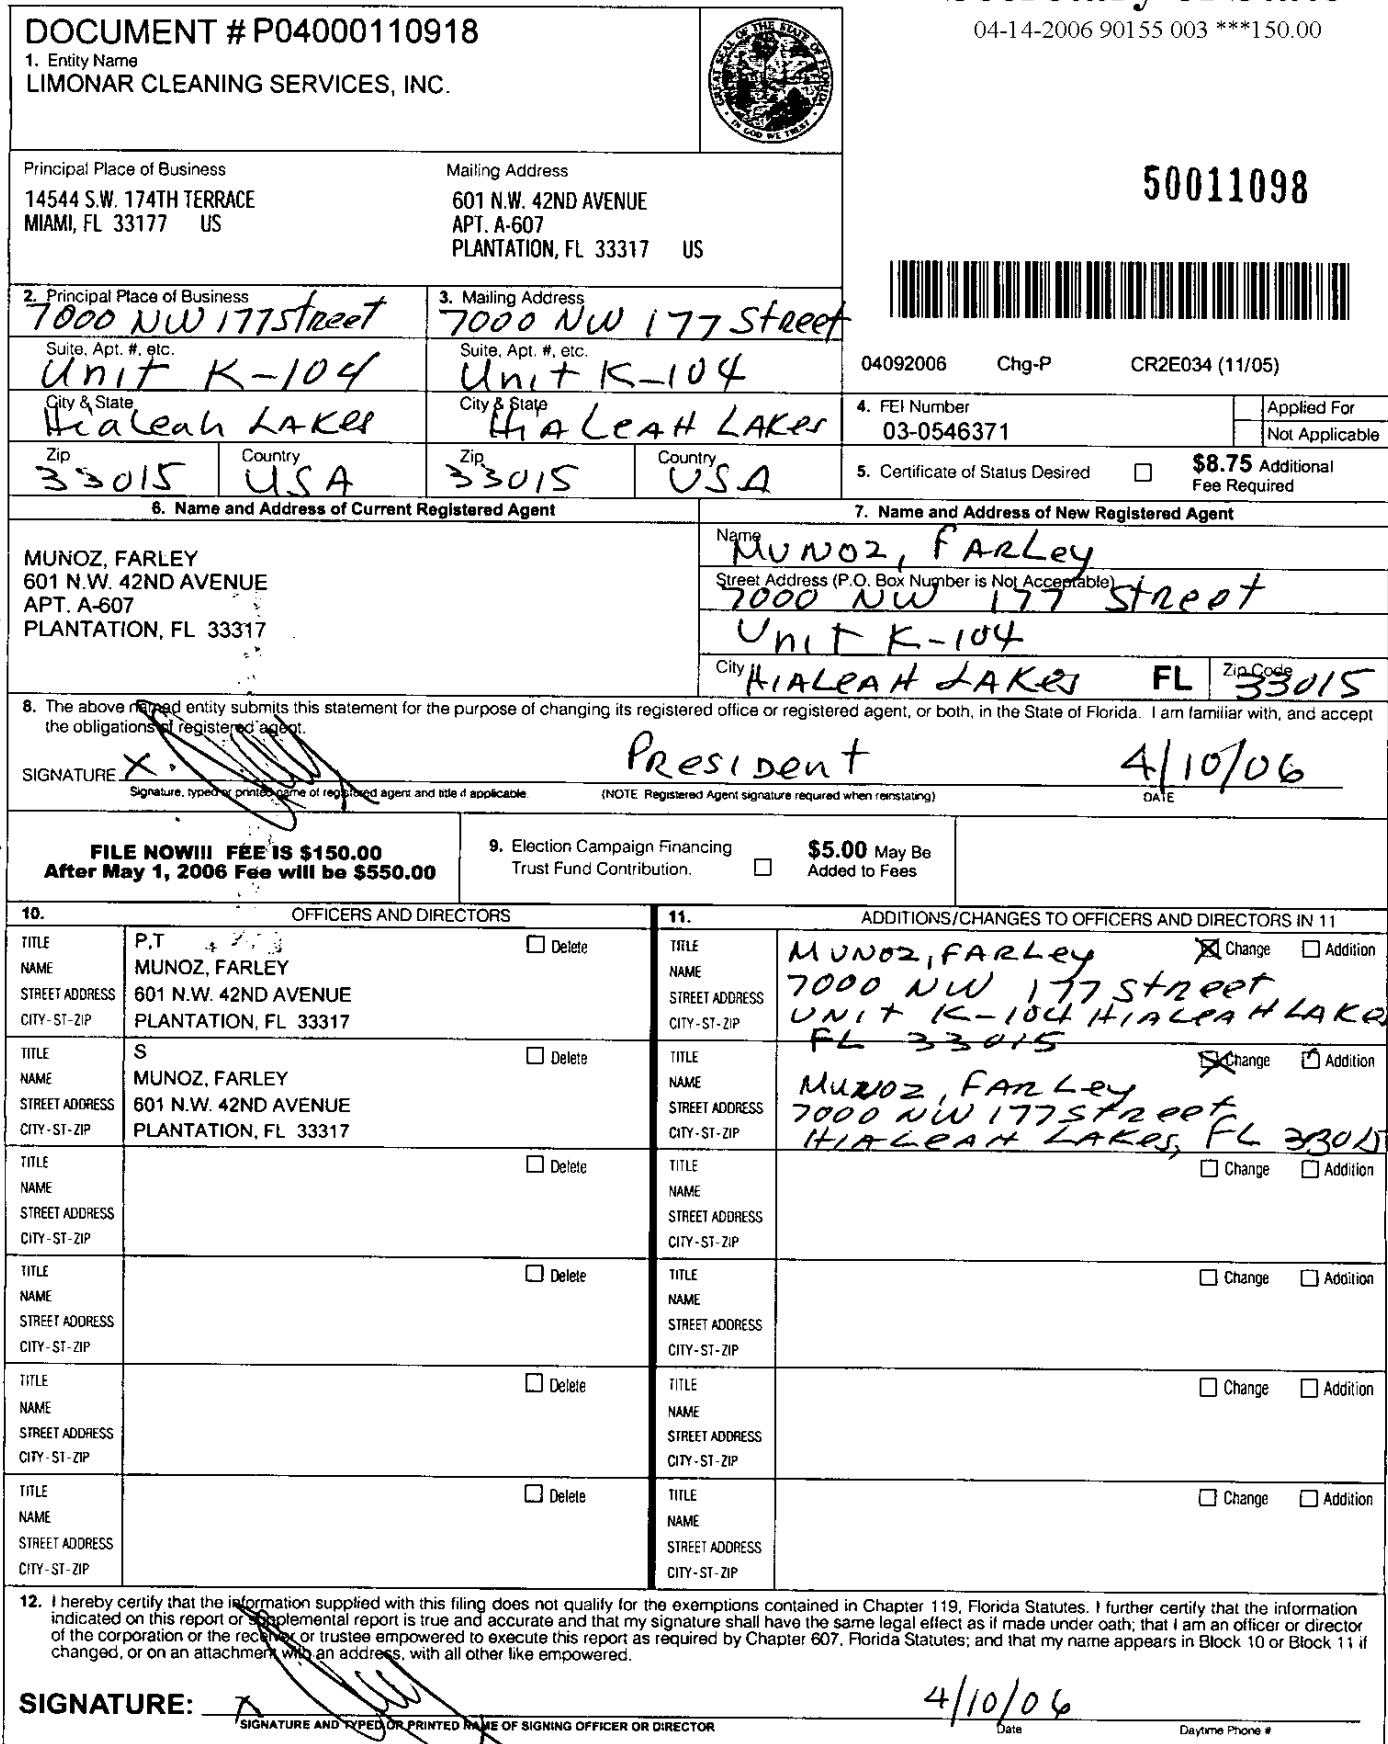 04-14-2006 90155 003 ***150.00
DOCUMENT # P04000110918
1. Entity Name
LIMONAR CLEANING SERVICES, INC.
GREAT SEAL OF THE STATE OF FLORIDA
IN GOD WE TRUST
Principal Place of Business
14544 S.W. 174TH TERRACE
MIAMI, FL 33177 US
Mailing Address
601 N.W. 42ND AVENUE
APT. A-607
PLANTATION, FL 33317 US
50011098
2. Principal Place of Business
7000 NW 177 Street
3. Mailing Address
7000 NW 177 Street
Suite, Apt. #, etc.
Unit K-104
Suite, Apt. #, etc.
Unit K-104
City & State
Hialeah LAKes
City & State
HiALeAH LAKes
Zip
33015
Country
USA
Zip
33015
Country
USA
04092006 Chg-P CR2E034 (11/05)
4. FEI Number
03-0546371
Applied For
Not Applicable
5. Certificate of Status Desired
$8.75 Additional
Fee Required
6. Name and Address of Current Registered Agent
MUNOZ, FARLEY
601 N.W. 42ND AVENUE
APT. A-607
PLANTATION, FL 33317
7. Name and Address of New Registered Agent
Name
MUNOZ, FARLey
Street Address (P.O. Box Number is Not Acceptable)
7000 NW 177 Street
Unit K-104
City HIALeAH LAKes FL Zip Code 33015
8. The above named entity submits this statement for the purpose of changing its registered office or registered agent, or both, in the State of Florida. I am familiar with, and accept
the obligations of registered agent.
SIGNATURE X. PResident 4/10/06
Signature, typed or printed name of registered agent and title if applicable. (NOTE Registered Agent signature required when reinstating) DATE
FILE NOW!!! FEE IS $150.00
After May 1, 2006 Fee will be $550.00
9. Election Campaign Financing
Trust Fund Contribution.
$5.00 May Be
Added to Fees
10. OFFICERS AND DIRECTORS
TITLE P,T Delete
NAME MUNOZ, FARLEY
STREET ADDRESS 601 N.W. 42ND AVENUE
CITY-ST-ZIP PLANTATION, FL 33317
TITLE S Delete
NAME MUNOZ, FARLEY
STREET ADDRESS 601 N.W. 42ND AVENUE
CITY-ST-ZIP PLANTATION, FL 33317
TITLE Delete
NAME
STREET ADDRESS
CITY-ST-ZIP
TITLE Delete
NAME
STREET ADDRESS
CITY-ST-ZIP
TITLE Delete
NAME
STREET ADDRESS
CITY-ST-ZIP
TITLE Delete
NAME
STREET ADDRESS
CITY-ST-ZIP
11. ADDITIONS/CHANGES TO OFFICERS AND DIRECTORS IN 11
TITLE MUNOZ, FARLey Change Addition
NAME 7000 NW 177 Street
STREET ADDRESS UNIt K-104 HIALeAH LAKe
CITY-ST-ZIP FL 33015
TITLE Change Addition
NAME MUNOZ, FARLey
STREET ADDRESS 7000 NW 177 Street
CITY-ST-ZIP HIALeAH LAKes, FL 33015
TITLE Change Addition
NAME
STREET ADDRESS
CITY-ST-ZIP
TITLE Change Addition
NAME
STREET ADDRESS
CITY-ST-ZIP
TITLE Change Addition
NAME
STREET ADDRESS
CITY-ST-ZIP
TITLE Change Addition
NAME
STREET ADDRESS
CITY-ST-ZIP
12. I hereby certify that the information supplied with this filing does not qualify for the exemptions contained in Chapter 119, Florida Statutes. I further certify that the information
indicated on this report or supplemental report is true and accurate and that my signature shall have the same legal effect as if made under oath; that I am an officer or director
of the corporation or the receiver or trustee empowered to execute this report as required by Chapter 607, Florida Statutes; and that my name appears in Block 10 or Block 11 if
changed, or on an attachment with an address, with all other like empowered.
SIGNATURE: X 4/10/06
SIGNATURE AND TYPED OR PRINTED NAME OF SIGNING OFFICER OR DIRECTOR Date Daytime Phone #